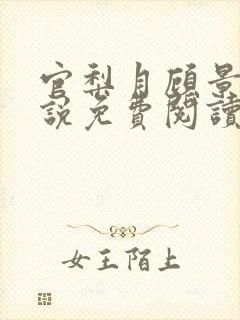 官梨月顧景
說免費閱讀
女王陌上